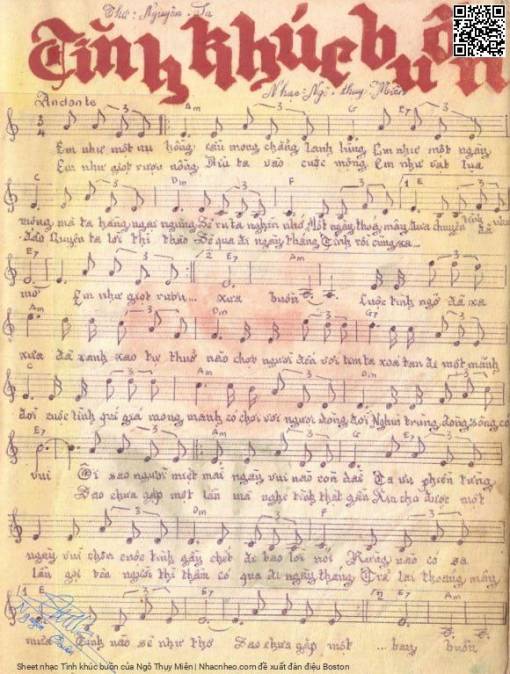 Thơ: Nguyên Sa
Tình khúc buồn
Nhạc: Ngô thụy Miên
Andante
Am G E7
Em như một nụ hồng, cầu mong chẳng lạnh lùng, Em như một ngày
Em như giọt rượu nồng, đưa ta vào cuộc mộng, Em như vạt lụa
C Dm F 1 E
mộng, mà ta hằng ngại ngùng, Sẽ ru ta nghìn nhớ, Một ngày thoáng mây đưa
đào Quyện ta lời thì thào Sẽ qua đi ngày tháng, Tình rồi cũng xa...
E7 2 E7 Am
mờ Em như giọt rượu... xưa buồn Cuộc tình ngỡ đã xa
Am Dm G7
xưa đã xanh xao tự thuở nào chợt người đến với tim ta xóa tan đi một mảnh
C Am Dm
đời cuộc tình quí giá mong manh có chơi vơi người dòng đời Nghìn trùng dòng sông có
E7 Am G E7
vui Ôi sao người miệt mài ngày vui nào còn dài Ta ưu phiền từng
Sao chưa gặp một lần mà nghe tình thật gần Xin cho được một
C Dm F
ngày vui chơn cuộc tình gầy chết đi bao lời nói Rừng nào có sa
lần gọi tên người thì thầm có qua đi ngày tháng Trả lại thoáng mây
1 E E7 E7 Am
mưa Tình nào sẽ như thơ Sao chưa gặp một ... bay buồn
Sheet nhạc Tình khúc buồn của Ngô Thụy Miên | Nhacnheo.com đề xuất đàn điệu Boston